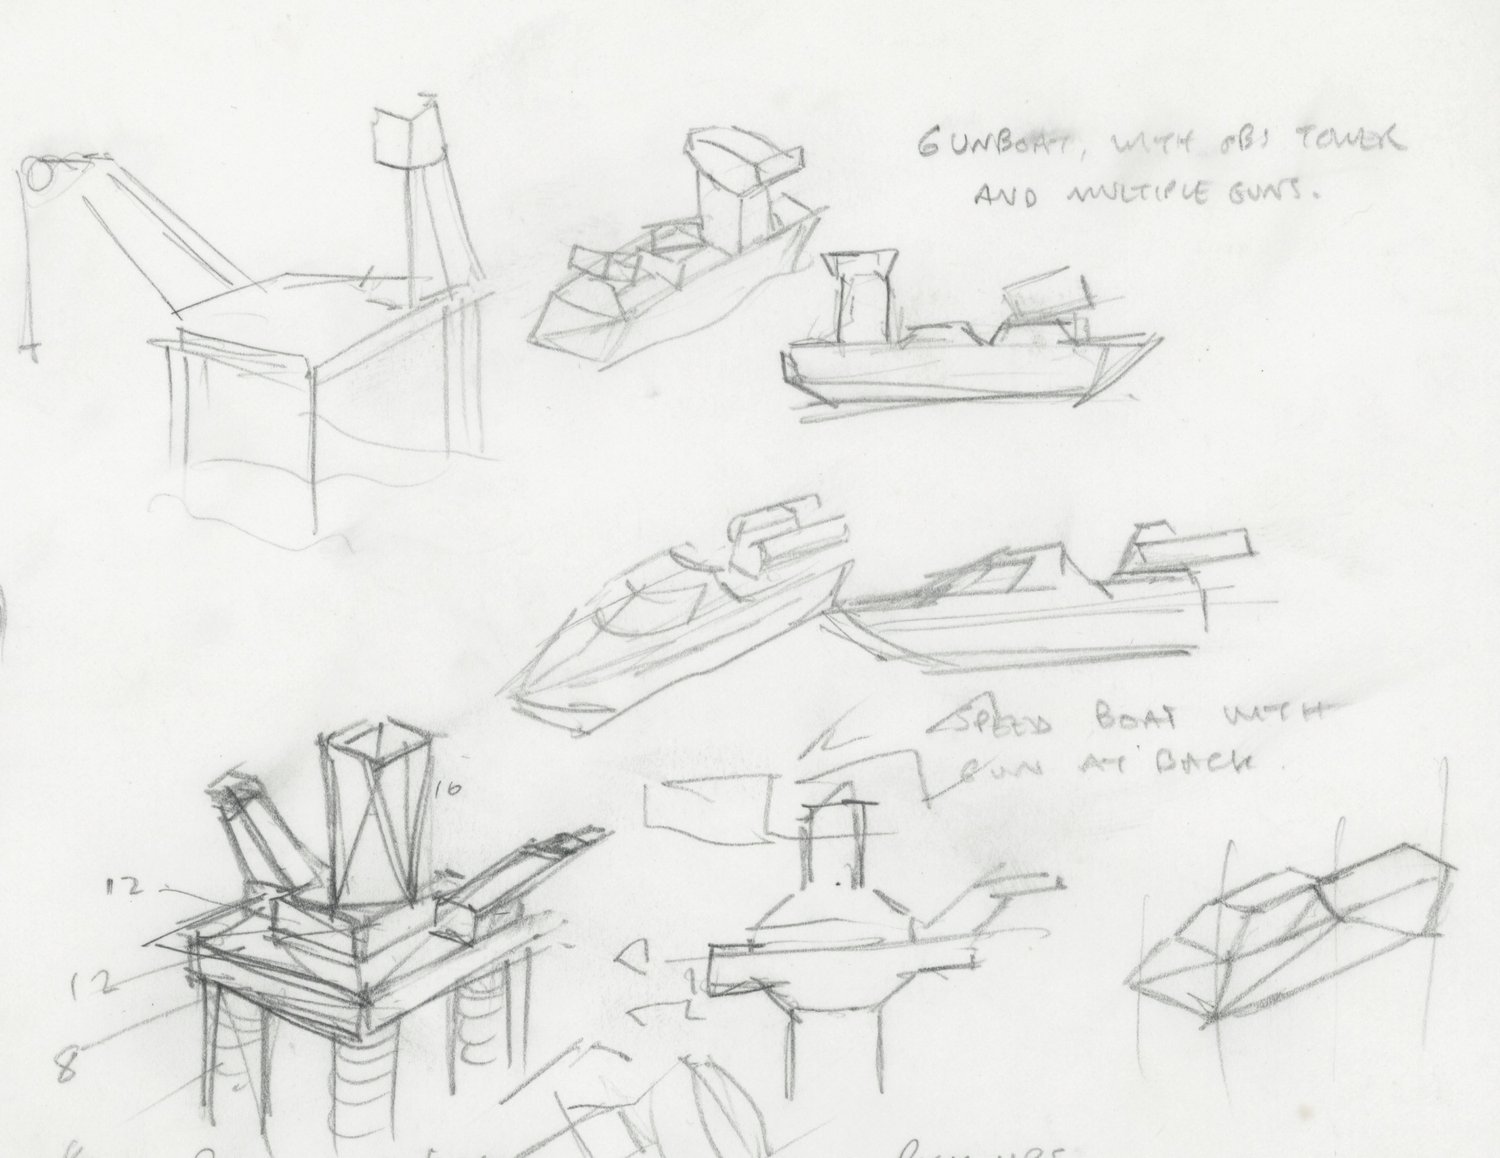 GUNBOAT, WITH OBS TOWER
AND MULTIPLE GUNS.
SPEED BOAT WITH
GUN AT BACK.
16
12
12
8